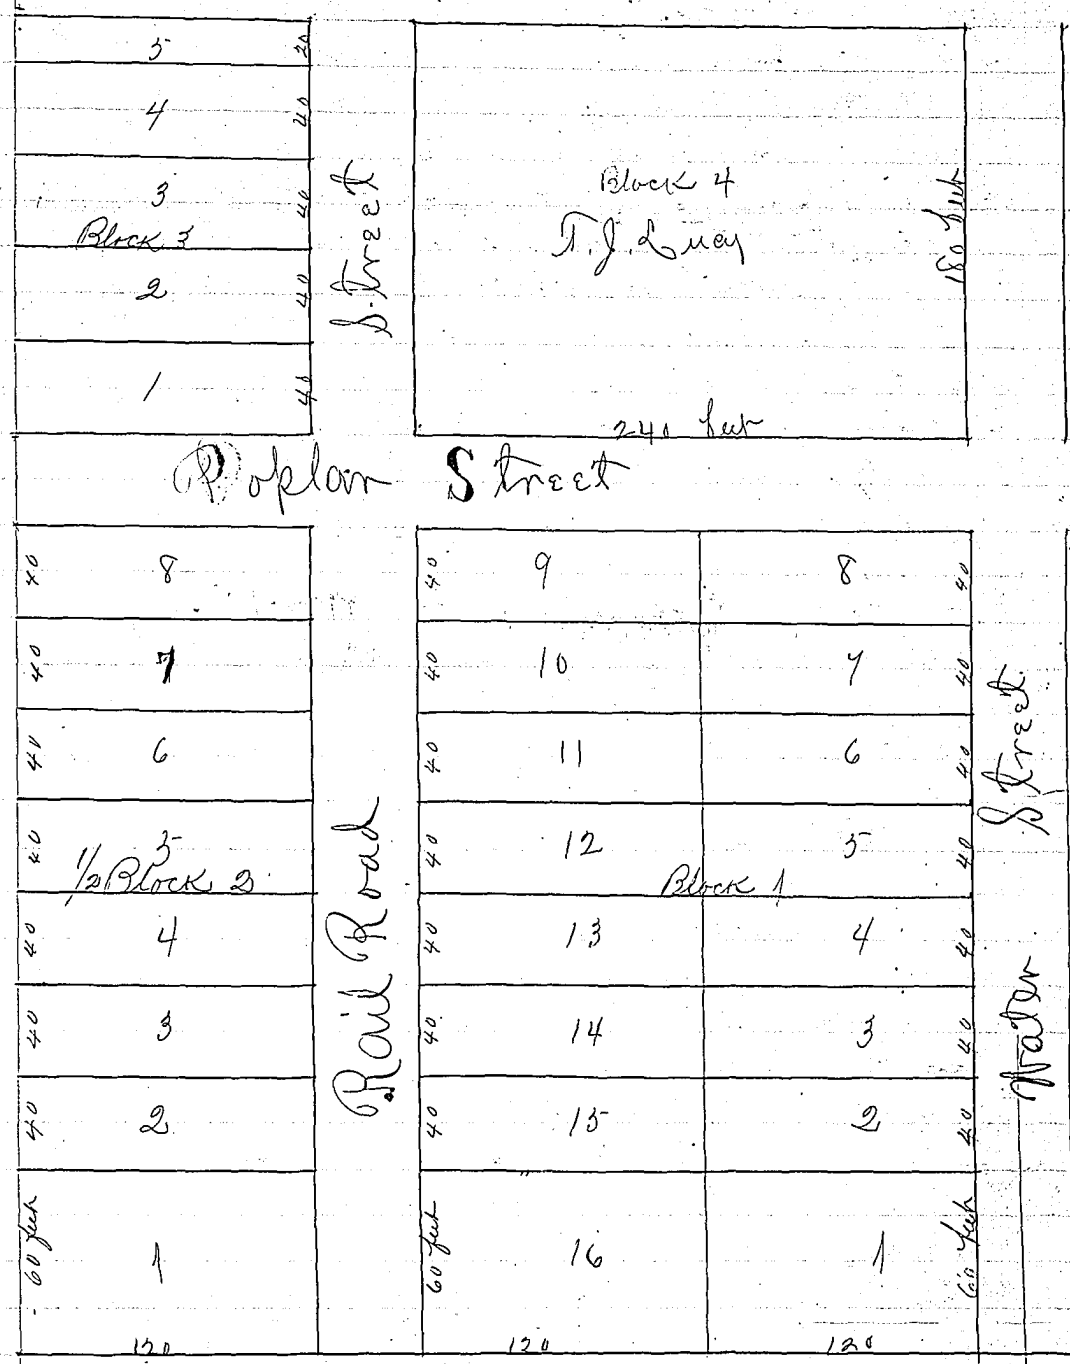 5 20
4 40
3 40
Block 3
2 40
1 40
Street
Block 4
T. J. Lucy
180 feet
240 feet
Poplar Street
40 8
40 7
40 6
40 5
1/2 Block 2
40 4
40 3
40 2
60 feet 1
120
Rail Road
40 9 8 40
40 10 7 40
40 11 6 40
40 12 5 40
Block 1
40 13 4 40
40 14 3 40
40 15 2 40
60 feet 16 1 60 feet
120 120
Water Street